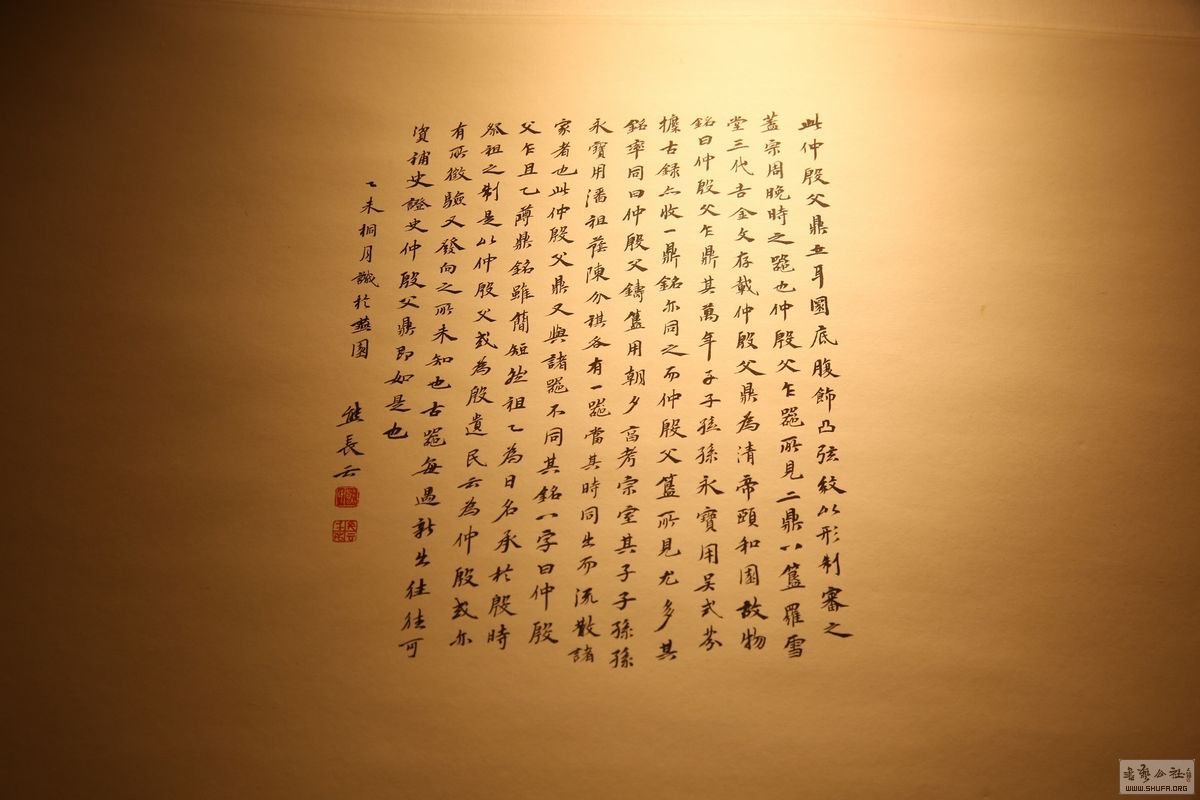 此仲殷父鼎立耳圜底腹飾凸弦紋以形制審之
蓋宗周晚時之器也仲殷父乍器所見二鼎八簋羅雪
堂三代吉金文存載仲殷父鼎為清帝頤和園故物
銘曰仲殷父乍鼎其萬年子子孫孫永寶用吳式芬
攈古録亦收一鼎銘亦同之而仲殷父簋所見尤多其
銘率同曰仲殷父鑄簋用朝夕享考宗室其子子孫孫
永寶用潘祖蔭陳介祺各有一器當其時同出而流散諸
家者也此仲殷父鼎又與諸器不同其銘八字曰仲殷
父乍且乙䵼鼎銘雖簡短然祖乙為日名承於殷時
祭祖之制是以仲殷父或為殷遺民云為仲殷或亦
有所徵驗又發向之所未知也古器每遇新出往往可
資補史證史仲殷父鼎即如是也
乙未桐月識於燕園 熊長云
WWW.SHUFA.ORG